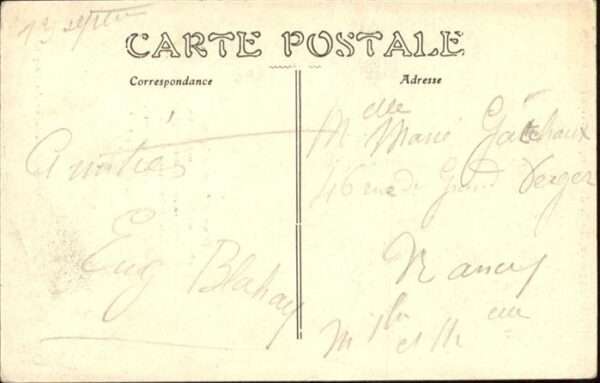 13 septbre
CARTE POSTALE
Correspondance
Adresse
Amitiés
Eug Blahay
Melle Marie Gauchaux
46 rue du Grand Verger
Nancy
Mthe et Meu